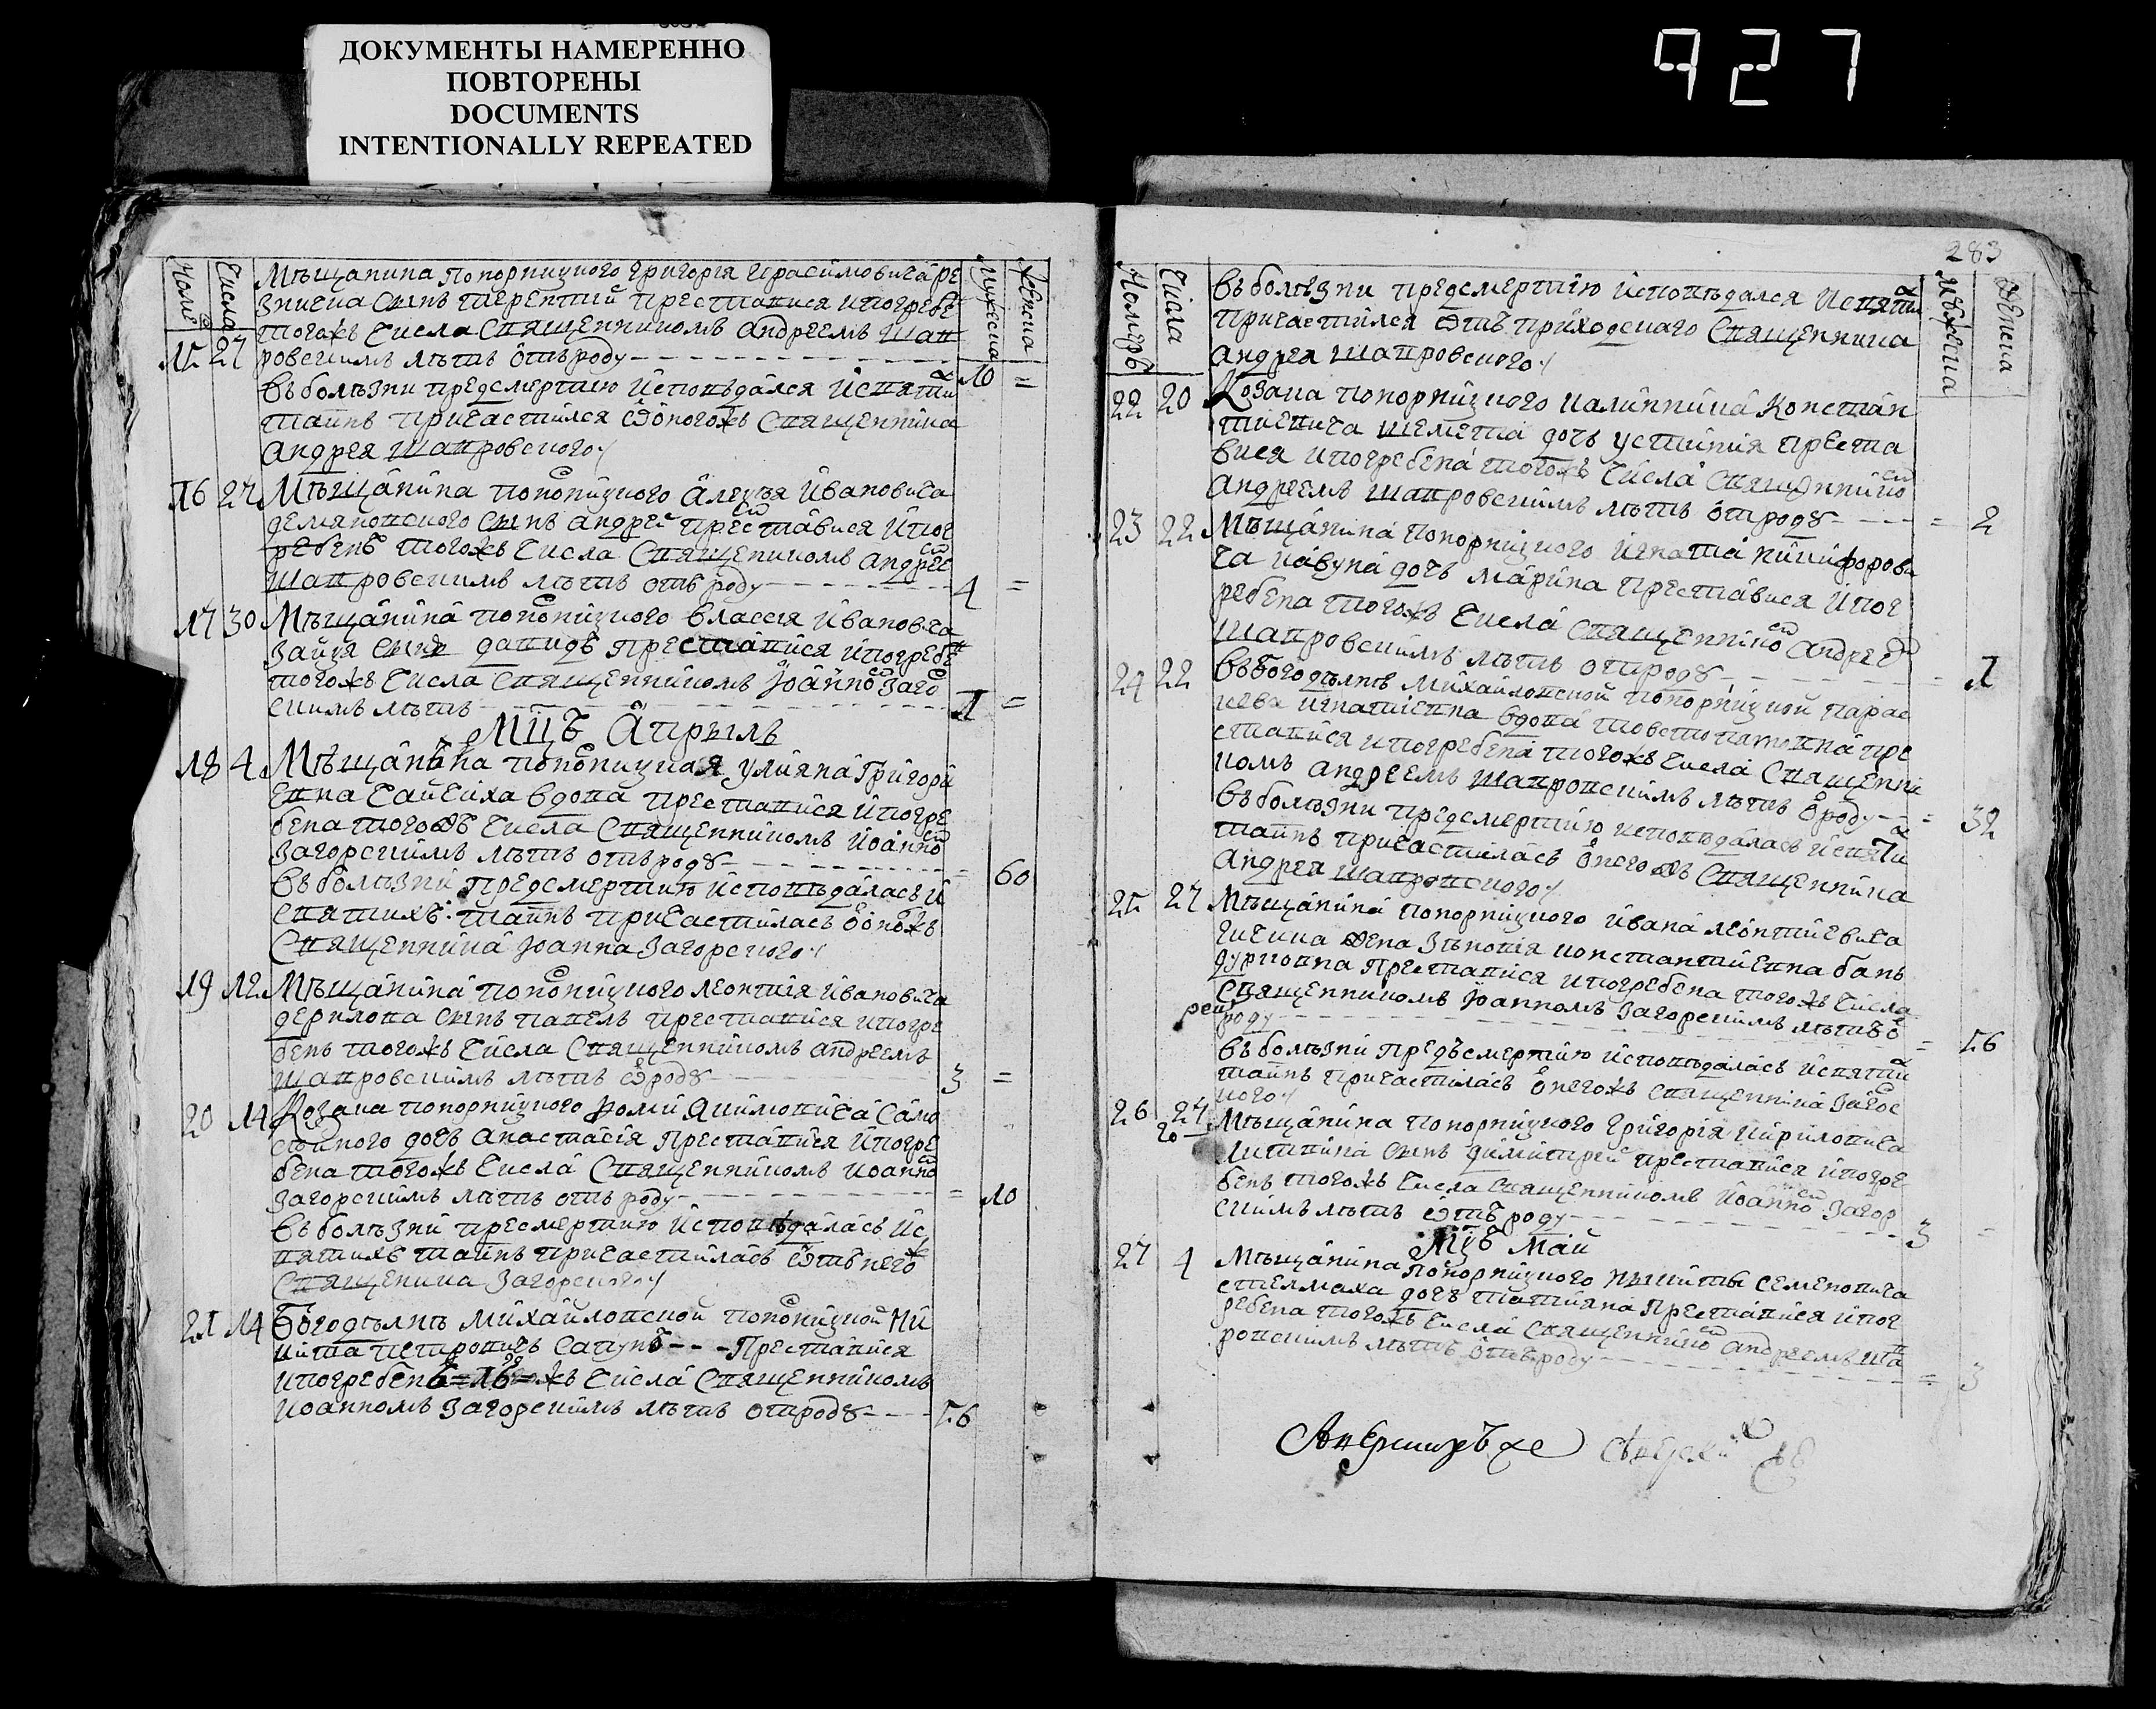 ДОКУМЕНТЫ НАМЕРЕННО
ПОВТОРЕНЫ
DOCUMENTS
INTENTIONALLY REPEATED
927
Числа
Мужеска
Женска
Мѣщанина Попорницкого Григорія Герасимовича Ре
зничка сынъ Терентий преставися и погребе
тогожъ числа священникомъ Андреемъ Шап
15 27 ровскимъ лѣтъ отъ роду 10 =
въ болѣзни предсмертию исповѣдался и святы
таинъ причастился священника
Андрея Шапровского
16 27 Мѣщанина попоницкого Алеѯѣя Ивановича
демяновского сынъ Андрей преставися и пог
ребенъ тогожъ числа священикомъ Андрее
Шапровскимъ лѣтъ отъ роду 4 =
17 30 Мѣщанина попоницкого Власея Ивановича
Зайця сынъ давидъ преставися и погребе
тогожъ числа священникомъ Іоанно Заго
скимъ лѣтъ 1 =
Мцъ Априль
18 4 Мѣщанка попоницкая Улияна Григори
евна вдова преставися и погре
бена тогожъ числа священникомъ Иоанно
Загорскимъ лѣтъ отъ роду = 60
въ болѣзни предсмертию исповѣдалась и
святихъ таинъ причастилась
Священника Иоанна Загорского
19 12 Мѣщанина попоницкого Леонтия Ивановича
сынъ Павелъ преставися и погре
бенъ тогожъ числа священникомъ Андреемъ
Шапровскимъ лѣтъ роду 3 =
20 14 Козака попорницкого Якимовича Само
дочъ Анастасія преставися и погре
бена тогожъ числа священникомъ Иоанно
Загорскимъ лѣтъ отъ роду = 10
въ болѣзни пресмертию исповѣдалась и с
вятихъ таинъ причастилась отъ него
священика Загорского
21 14 Богодѣлнѣ Михайловской попоницкой Ни
кита Петровичъ Сапунъ преставися
и погребенъ = 16 = жъ числа священникомъ
Иоанномъ Загорскимъ лѣтъ отроду 56
283
Номеръ
Числа
Мужеска
Женска
въ болѣзни предсмертию исповѣдался и святы
причастился отъ приходского священника
Андрея Шапровского
22 20 Козака попорницкого Калинника Констан
тиевича Шемета дочъ Устиния преста
вися и погребена тогожъ числа священнико
Андреемъ Шапровскимъ лѣтъ отроду = 2
23 22 Мѣщанина попорницкого Игната Никифорови
ча Кавуна дочъ Марина преставися и пог
ребена тогожъ числа священнико Андрее
Шапровскимъ лѣтъ отроду 1
24 22 въ богодѣлнѣ Михайловской попорницкой Парас
кева Игнатиевна вдова пре
ставися и погребена тогожъ числа священни
комъ Андреемъ Шапровскимъ лѣтъ роду = 32
въ болѣзни предсмертию исповѣдалась и святи
таинъ причастилась онегожъ священника
Андрея Шапровского
25 27 Мѣщанина попорницкого Ивана Леонтиевича
жена Зѣновія Константиевна бан
дурковна преставися и погребена тогожъ числа
священникомъ Іоанномъ Загорскимъ лѣтъ
роду = 56
въ болѣзни предъсмертию исповѣдалась и святы
таинъ причастилась онегожъ священника Загос
кого
26 27 Мѣщанина попорницкого Григорія Кириловича
Литвина сынъ Димитрей преставися и погре
бенъ тогожъ числа священникомъ Иоанно Загор
скимъ лѣтъ отъ роду 3
Мцъ Май
27 4 Мѣщанина попорницкого Никиты Семеновича
Стелмаха дочъ Татияна преставися и пог
ребена тогожъ числа священнико Андреемъ Шап
ровскимъ лѣтъ отъ роду = 3